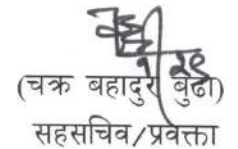 (चक्र बहादुर बुढा)
सहसचिव/प्रवक्ता